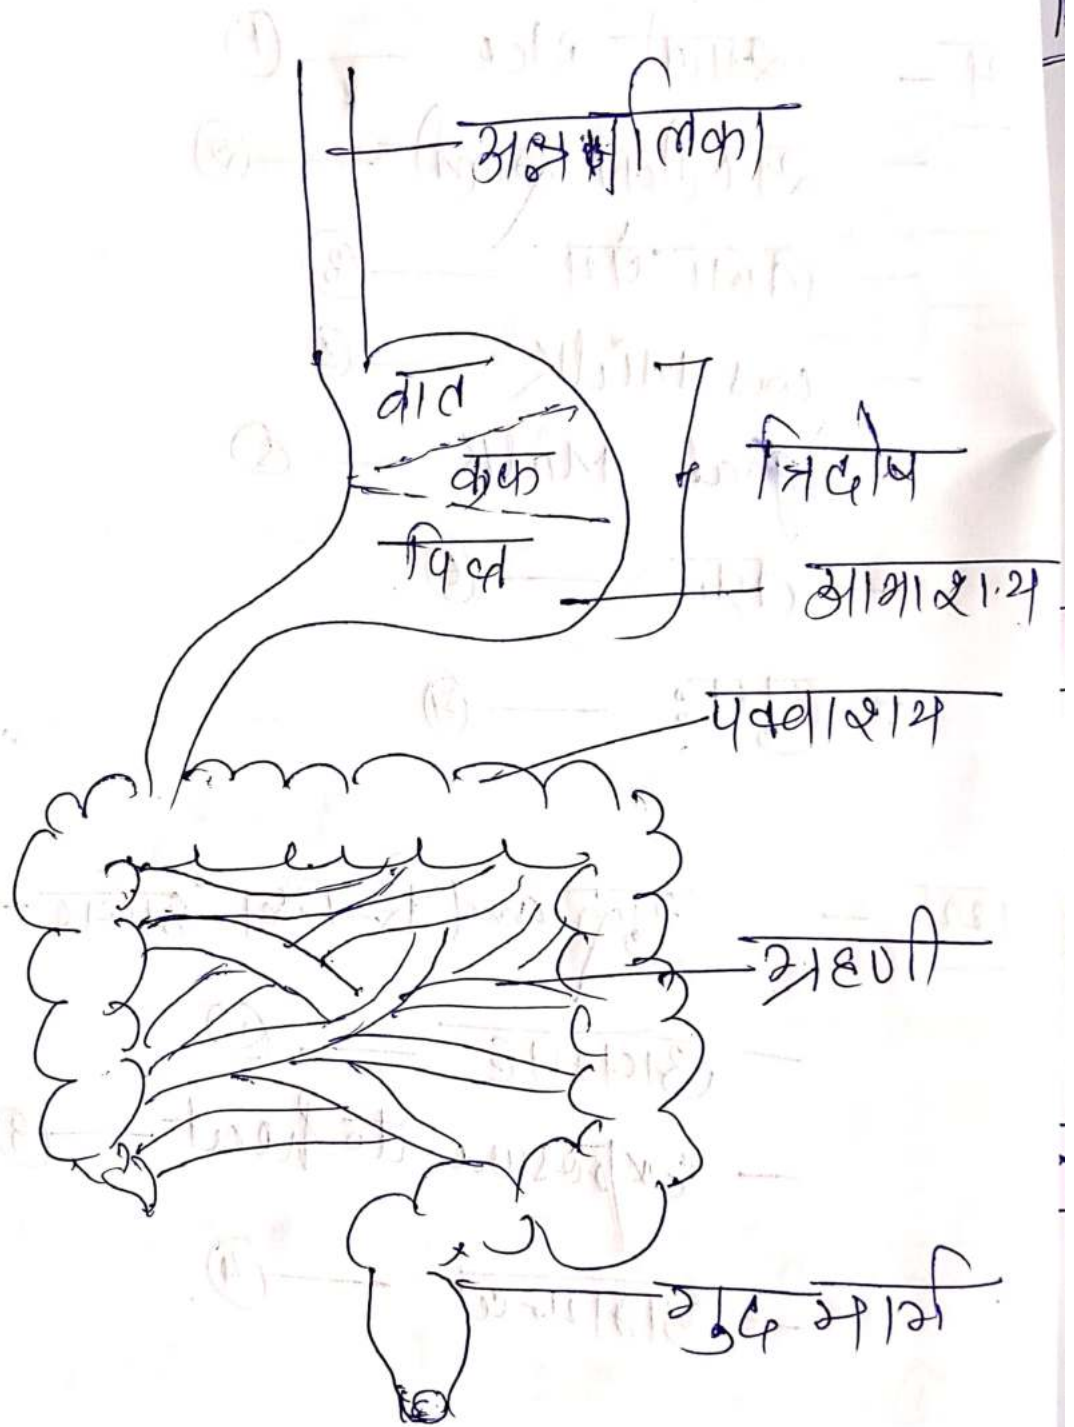 अन्ननलिका
वात
कफ
पित्त
त्रिदोष
आमाशय
पक्वाशय
ग्रहणी
गुद मार्ग